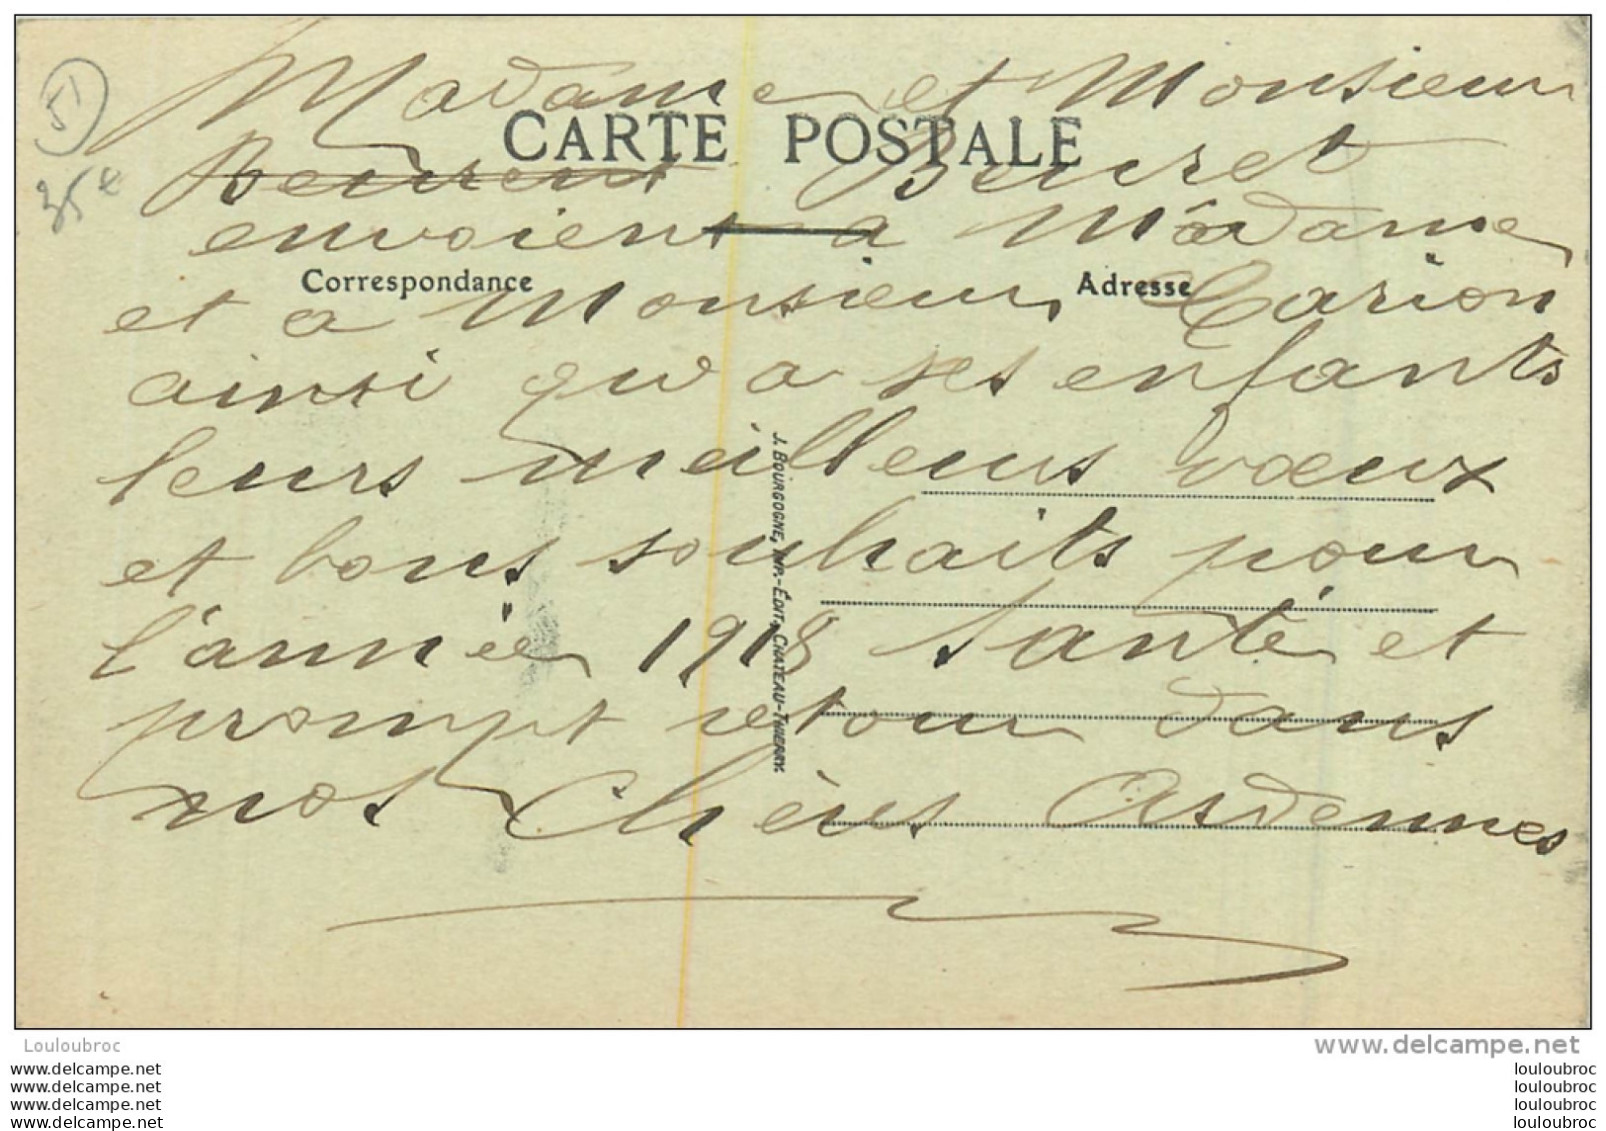 51
35e
Madame et Monsieur
CARTE POSTALE
Beurent Beuret
envoient a Madame
Correspondance Adresse
et a Monsieur Carion
ainsi qu'a ses enfants
leurs meilleurs vœux
et bons souhaits pour
l'année 1918 Santé et
prompt retour dans
nos Chères Ardennes
J. BOURGOGNE, IMP.-ÉDIT., CHATEAU-THIERRY.
Louloubroc www.delcampe.net
www.delcampe.net louloubroc
www.delcampe.net louloubroc
www.delcampe.net louloubroc
www.delcampe.net louloubroc